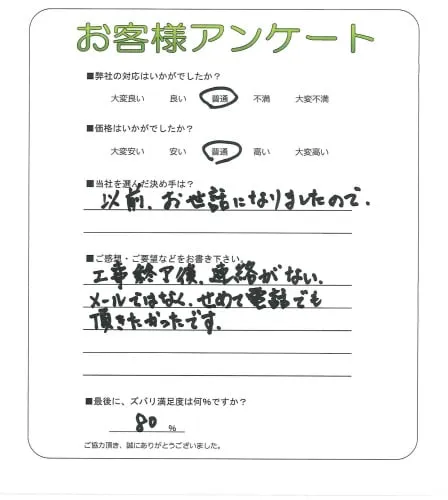 お客様アンケート
■弊社の対応はいかがでしたか？
大変良い 良い 普通 不満 大変不満
■価格はいかがでしたか？
大変安い 安い 普通 高い 大変高い
■当社を選んだ決め手は？
以前、お世話になりましたので。
■ご感想・ご要望などをお書き下さい。
工事終了後、連絡がない、
メールではなく、せめて電話でも
頂きたかったです。
■最後に、ズバリ満足度は何%ですか？
80 %
ご協力頂き、誠にありがとうございました。